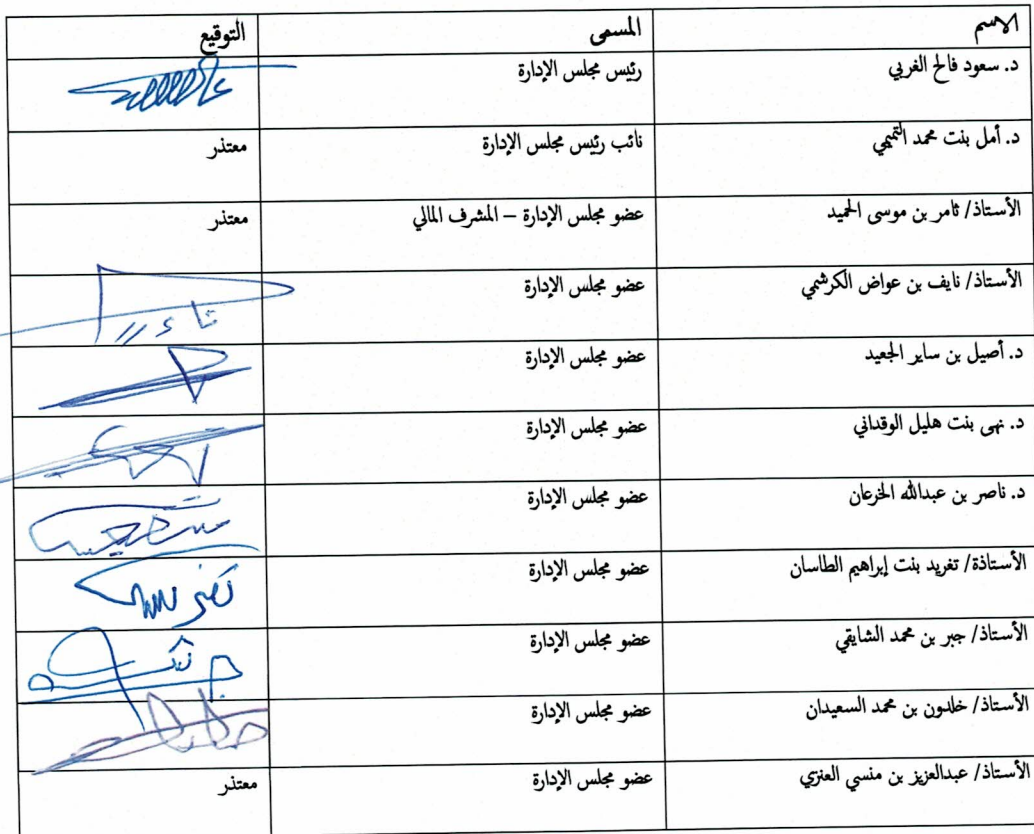 الاسم المسمى التوقيع
د. سعود فالح الغربي رئيس مجلس الإدارة
د. أمل بنت محمد التميمي نائب رئيس مجلس الإدارة معتذر
الأستاذ/ ثامر بن موسى الحميد عضو مجلس الإدارة – المشرف المالي معتذر
الأستاذ/ نايف بن عواض الكرشمي عضو مجلس الإدارة
د. أصيل بن ساير الجعيد عضو مجلس الإدارة
د. نهى بنت هليل الوقداني عضو مجلس الإدارة
د. ناصر بن عبدالله الخرعان عضو مجلس الإدارة
الأستاذة/ تغريد بنت إبراهيم الطاسان عضو مجلس الإدارة
الأستاذ/ جبر بن محمد الشايقي عضو مجلس الإدارة
الأستاذ/ خلدون بن محمد السعيدان عضو مجلس الإدارة
الأستاذ/ عبدالعزيز بن منسي العنزي عضو مجلس الإدارة معتذر